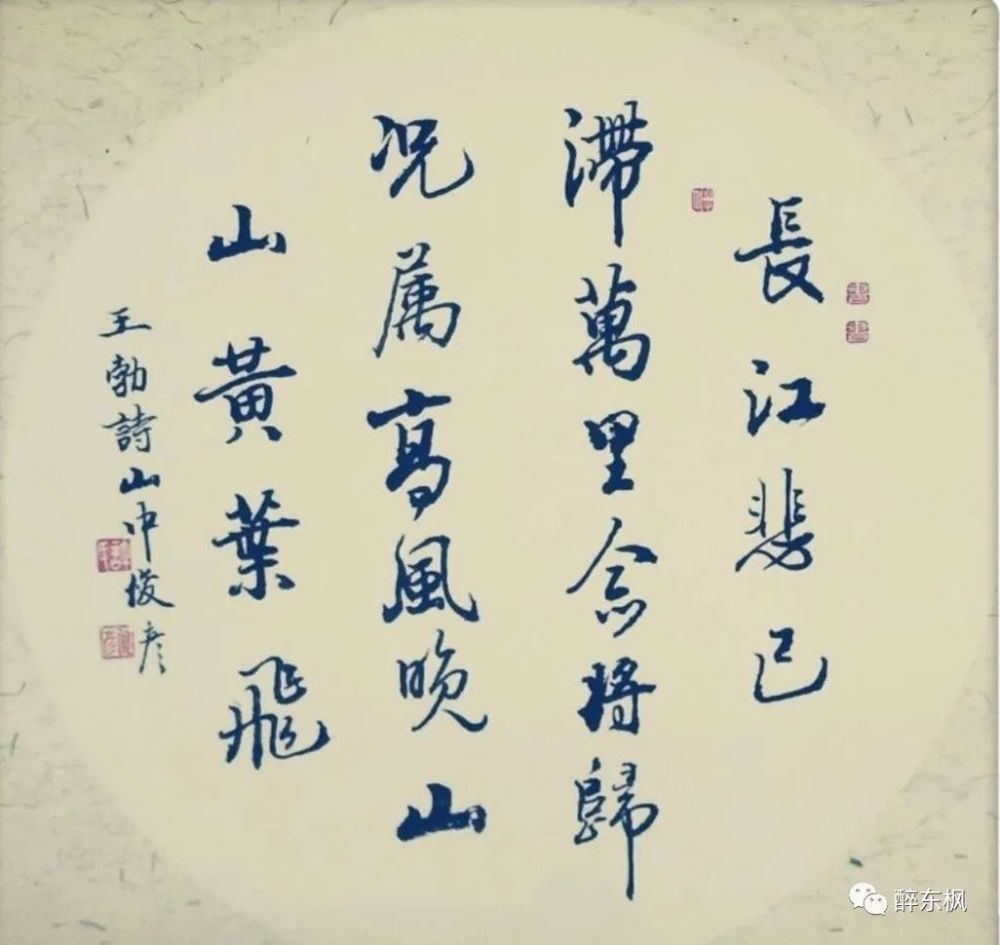 長江悲已
滯萬里念將歸
况属高風晚山
山黃葉飛
王勃詩山中俊彦
醉东枫